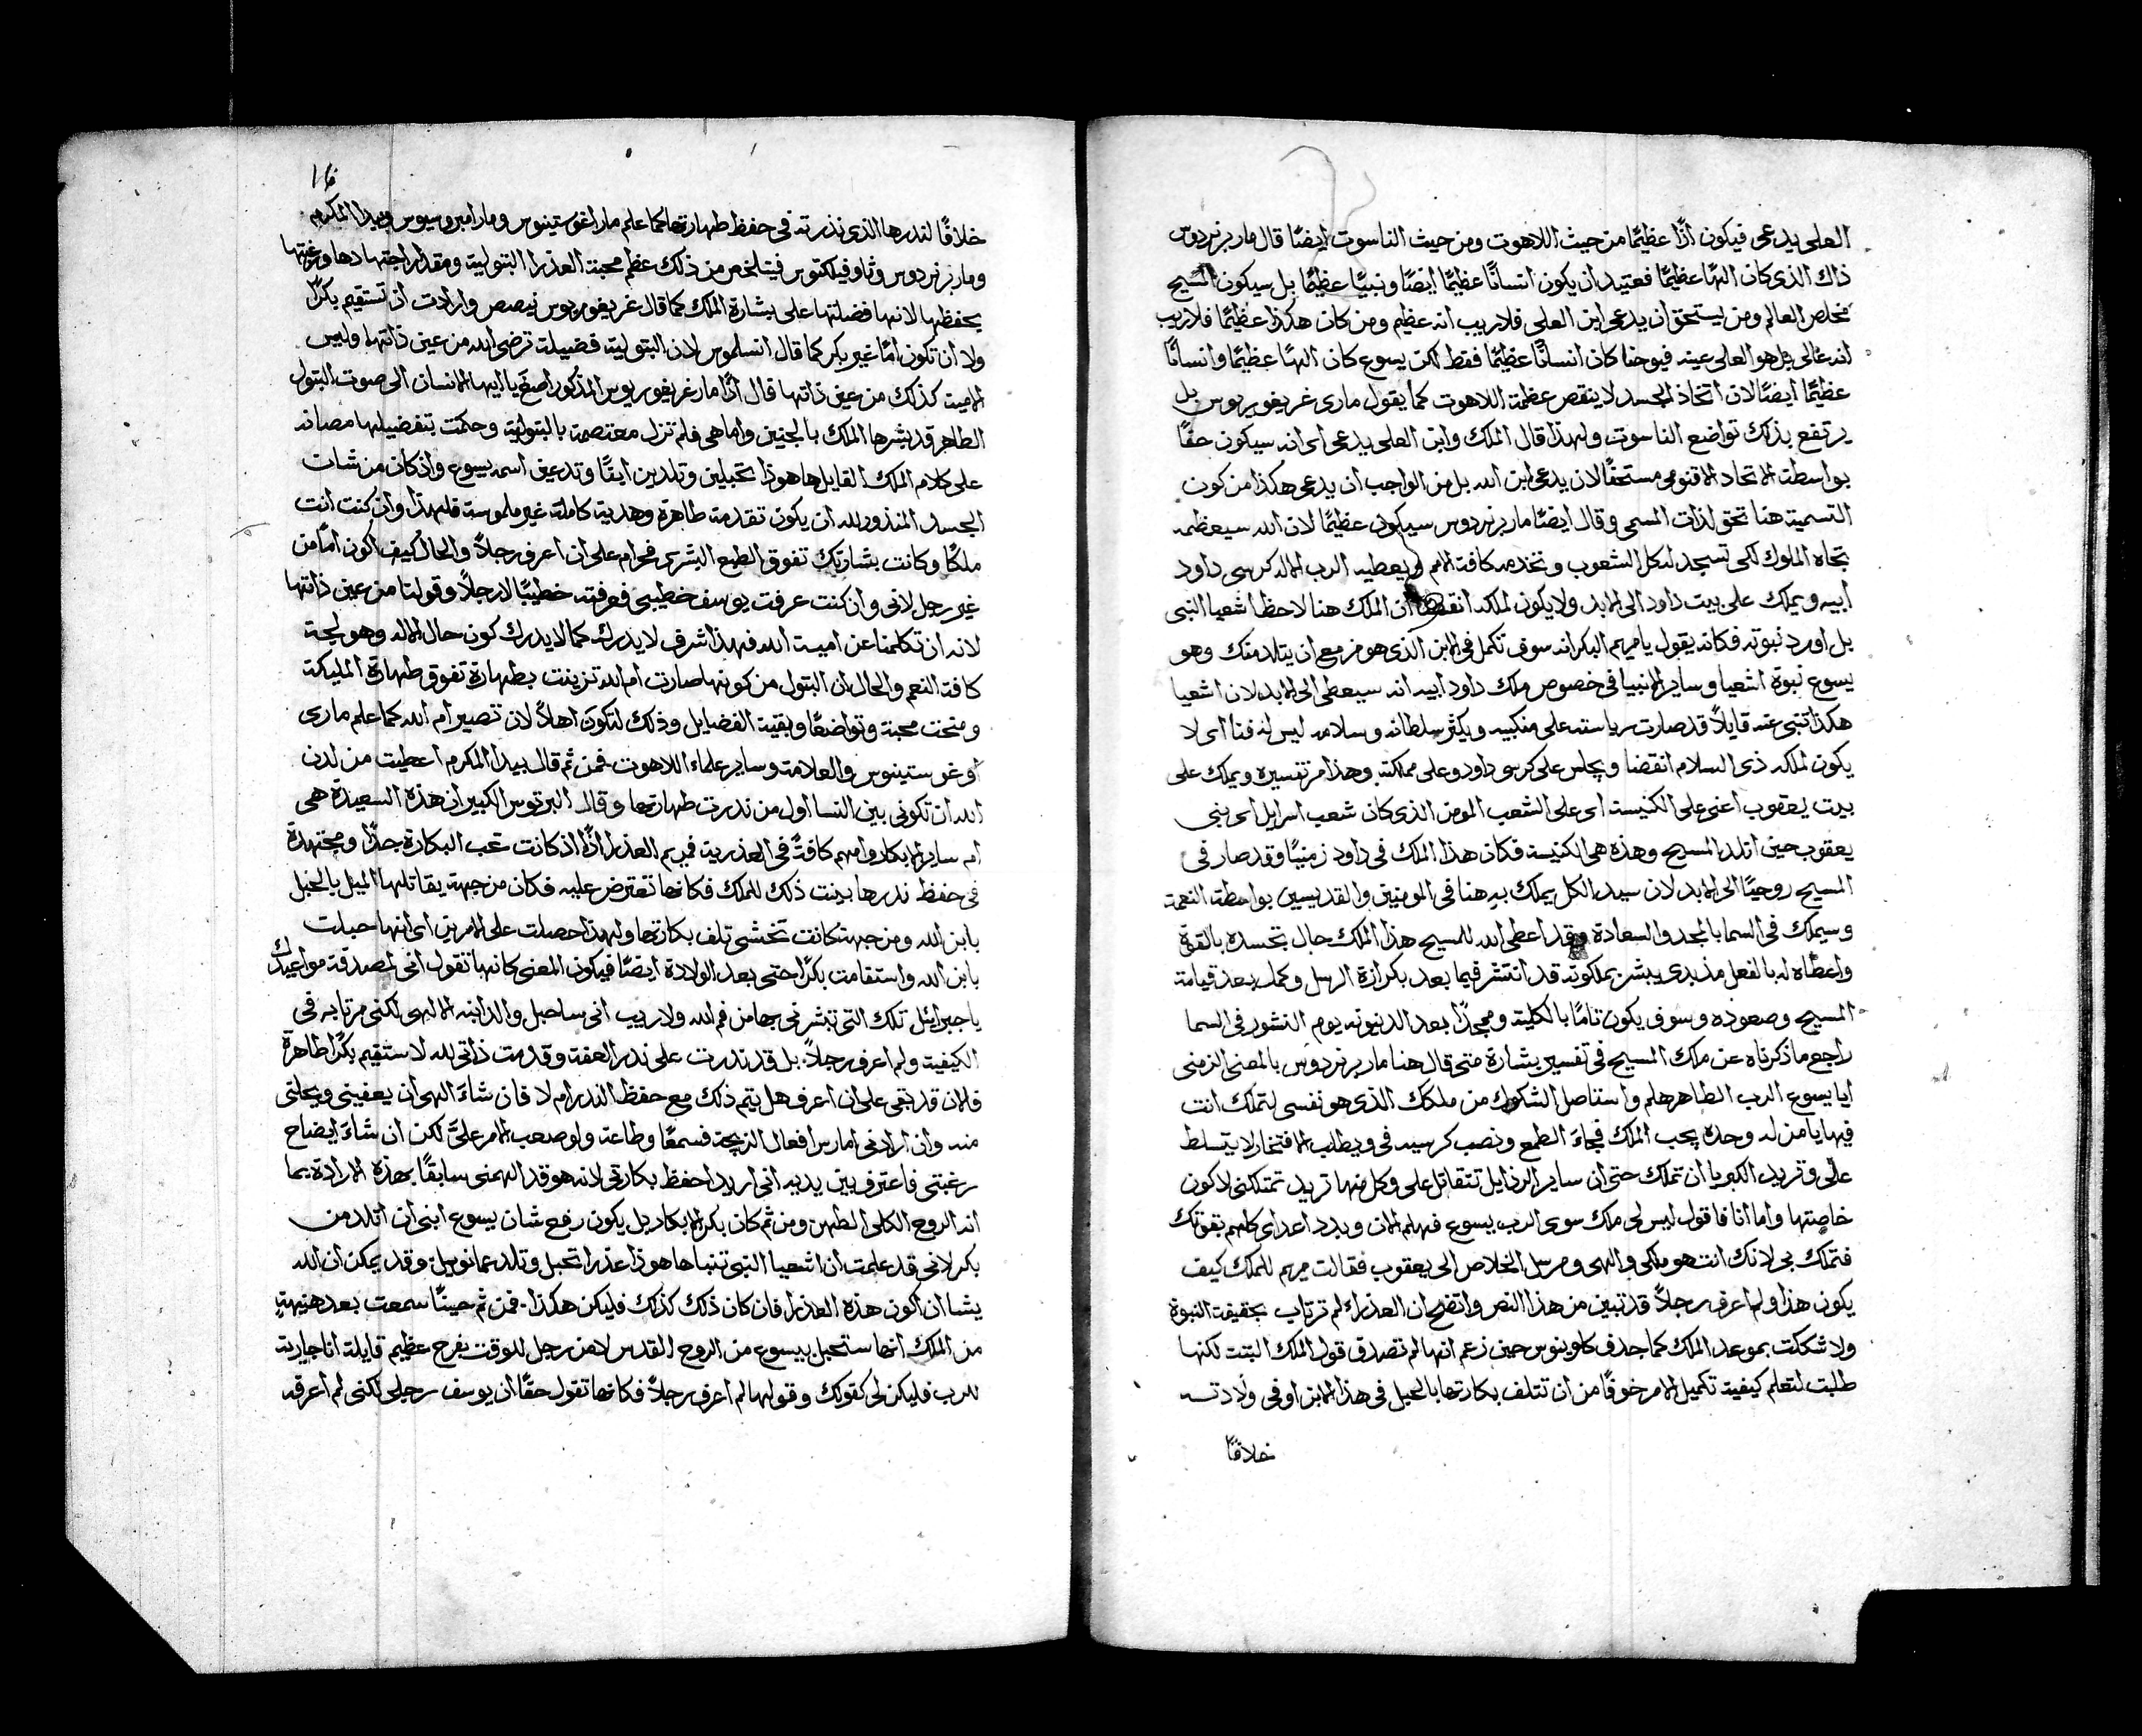 العلي يدعى فيكون اذًا عظيمًا من حيث اللاهوت ومن حيث الناسوت ايضًا قال مار برنردوس
ذاك الذى كان الهًا عظيمًا فعتيد ان يكون انسانًا عظيمًا ايضًا ونبيًا عظيمًا بل سيكون المسيح
مخلص العالم ومن يستحق ان يدعى ابن العلى فلا ريب انه عظيم ومن كان هكذا عظيمًا فلا ريب
انه عالى بل هو العالى عينه فيوحنا كان انسانًا عظيمًا فقط لكن يسوع كان الهًا عظيمًا وانسانًا
عظيمًا ايضًا لان اتخاذ الجسد لا ينقص عظمة اللاهوت كما يقول مارى غريغوريوس بل
يرتفع بذلك تواضع الناسوت ولهذا قال الملك وابن العلى يدعى اى انه سيكون حقًا
بواسطة الاتحاد الاقنومى مستحقًا لان يدعى ابن الله بل من الواجب ان يدعى هكذا من كون
التسمية هنا تحق لذات المسمى وقال ايضًا مار برنردوس سيكون عظيمًا لان الله سيعظمه
تجاه الملوك لكى تسجد له كل الشعوب وتخدمه كافة الامم ويعطيه الرب الاله كرسى داود
ابيه ويملك على بيت داود الى الابد ولا يكون لملكه انقضا ان الملك هنا لاحظ اشعيا النبى
بل اورد نبوته فكانه يقول يا مريم البكر انه سوف تكمل فى الابن الذى هو مزمع ان يتلد منك وهو
يسوع نبوة اشعيا وساير الانبيا فى خصوص ملك داود ابيه انه سيعطى الى الابد لان اشعيا
هكذا تنبى عنه قايلاً قد صارت رياسته على منكبيه ويكثر سلطانه وسلامه ليس له فنا اى لا
يكون لملكه ذى السلام انقضا ويجلس على كرسى داود وعلى مملكته وهذا مر تفسيره ويملك على
بيت يعقوب اعنى على الكنيسة اى على الشعب المومن الذى كان شعب اسرايل اى بنى
يعقوب حين اتلد المسيح وهذه هى الكنيسة فكان هذا الملك فى داود زمنيًا وقد صار فى
المسيح روحيًا الى الابد لان سيد الكل يملك به هنا فى المومنين والقديسين بواسطة النعمة
وسيملك فى السما بالمجد والسعادة وقد اعطى الله للمسيح هذا الملك حال تجسده بالقوة
واعطاه له بالفعل مذ بدى يبشر بملكوته قد انتشر فيما بعد بكرازة الرسل وكمل بعد قيامة
المسيح وصعوده وسوف يكون تامًا بالكلية ومجدًا بعد الدينونه يوم النشور فى السما
راجع ما ذكرناه عن ملك المسيح فى تفسير بشارة متى قال هنا مار برنردوس بالمعنى الزمنى
ايا يسوع الرب الطاهر هلم واستاصل الشكوك من ملكك الذى هو نفسى لتملك انت
فيها يا من له وحده يجب الملك فجاءَ الطمع ونصب كرسيه فى ويطلب الافتخار لا يتسلط
علّى وتريد الكبريا ان تملك حتى ان ساير الرذايل تتقاتل على وكل منها تريد تمتلكنى لاكون
خاصتها واما انا فاقول ليس لى ملك سوى الرب يسوع فهلم الان وبدد اعداى كلهم بقوتك
فتملك بى لانك انت هو ملكى والهى ومرسل الخلاص الى يعقوب فقالت مريم للملك كيف
يكون هذا ولم اعرف رجلاً قد تبين من هذا النص واتضح ان العذراء لم ترتاب بحقيقة النبوة
ولا شككت بموعد الملك كما جدف كلوينوس حين زعم انها لم تصدق قول الملك البتة لكنها
طلبت لتعلم كيفية تكميل الامر خوفًا من ان تتلف بكارتها بالحبل فى هذا الابن او فى ولادته
خلافًا
خلافًا لنذرها الذى نذرته فى حفظ طهارتها كما علم مار اغوستينوس ومار امبروسيوس وبيدا المكرم
ومار برنردوس وثاوفيلكتوس فيتلخص من ذلك عظم محبة العذرا البتولية ومقدار اجتهادها ورغبتها
بحفظها لانها فضلتها على بشارة الملك كما قال غريغوريوس نيصص وارادت ان تستقيم بكرًا
ولا ان تكون امًا غير بكر كما قال انسلموس لان البتولية فضيلة ترضى الله من عين ذاتها وليس
الامية كذلك من عين ذاتها قال اذًا مار غريغوريوس المذكور اصغَ يا ايها الانسان الى صوت البتول
الطاهر قد بشرها الملك بالجنين واما هى فلم تزل معتصمة بالبتولية وحكمت بتفضيلها مصانه
على كلام الملك القايل ها هوذا تحبلين وتلدين ابنًا وتدعين اسمه يسوع واذ كان من شان
الجسد المنذور لله ان يكون تقدمة طاهرة وهدية كاملة غير ملموسة فلهذا وان كنت انت
ملكًا وكانت بشارتك تفوق الطبع البشرى فحرام على ان اعرف رجلاً والحال كيف اكون امًا من
غير رجل لانى وان كنت عرفت يوسف خطيبى فعرفته خطيبًا لا رجلاً وقولنا من عين ذاتها
لانه ان تكلمنا عن امية الله فهذا شرف لا يدرك كما لا يدرك كون حال الاله وهو لجة
كافة النعم والحال ان البتول من كونها صارت ام الله تزينت بطهارة تفوق طهارة المليكة
ومنحت محبة وتواضعًا وبقية الفضايل وذلك لتكون اهلاً لان تصير ام الله كما علم مارى
اوغوستينوس والعلامة وساير علماء اللاهوت فمن ثم قال بيدا المكرم اعطيت من لدن
الله ان تكونى بين النسا اول من نذرت طهارتها وقال البرتوس الكبير ان هذه السعيدة هى
ام ساير الابكار وامهم كافةً فى العذرية فمريم العذرا اذًا اذ كانت تحب البكارة جدًا ومجتهدة
فى حفظ نذرها بينت ذلك للملك فكانها تعترض عليه فكان من جهة يقاتلها الميل بالحبل
بابن الله ومن جهة كانت تخشى تلف بكارتها ولهذا حصلت على الامرين اى انها حبلت
بابن الله واستقامت بكرًا حتى بعد الولادة ايضًا فيكون المعنى كانها تقول انى لمصدقة مواعيدك
يا جبرائيل تلك التى تبشرنى بها من فم الله ولا ريب انى ساحبل والد ابنه الالهى لكنى مرتابه فى
الكيفية ولم اعرف رجلاً بل قد نذرت على نذر العفة وقدمت ذاتى لله لاستقيم بكرًا طاهرة
فالان قد بقى على ان اعرف هل يتم ذلك مع حفظ النذر ام لا فان شاءَ الهى ان يعفينى ويحلنى
منه وان ارادنى امارس افعال الزيجة فسمعًا وطاعة ولو صعب الامر علىَّ لكن ان شاءَ ايضاح
رغبتى فاعترف بين يديه انى اريد احفظ بكارتى لانه هو قد الهمنى سابقًا بهذه الارادة بما
انه الروح الكلى الطهر ومن ثم كان بكر الابكار بل يكون رفع شان يسوع ابنى ان اتلد من
بكر لانى قد علمت ان اشعيا النبى تنبا ها هوذا عذرا تحبل وتلد عمانويل وقد يمكن ان الله
يشا ان اكون هذه العذرا فان كان ذلك كذلك فليكن هكذا فمن ثم حينًا سمعت بعد هنيهةٍ
من الملك انها ستحبل بيسوع من الروح القدس لا من رجل للوقت بفرح عظيم قايلة انا جارية
للرب فليكن لى كقولك وقولها لم اعرف رجلاً فكانها تقول حقًا ان يوسف رجلى لكنى لم اعرفه